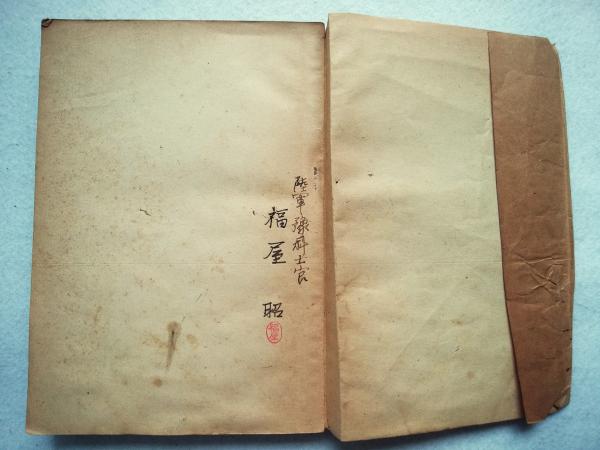 陸軍豫科士官
福屋 昭
福屋